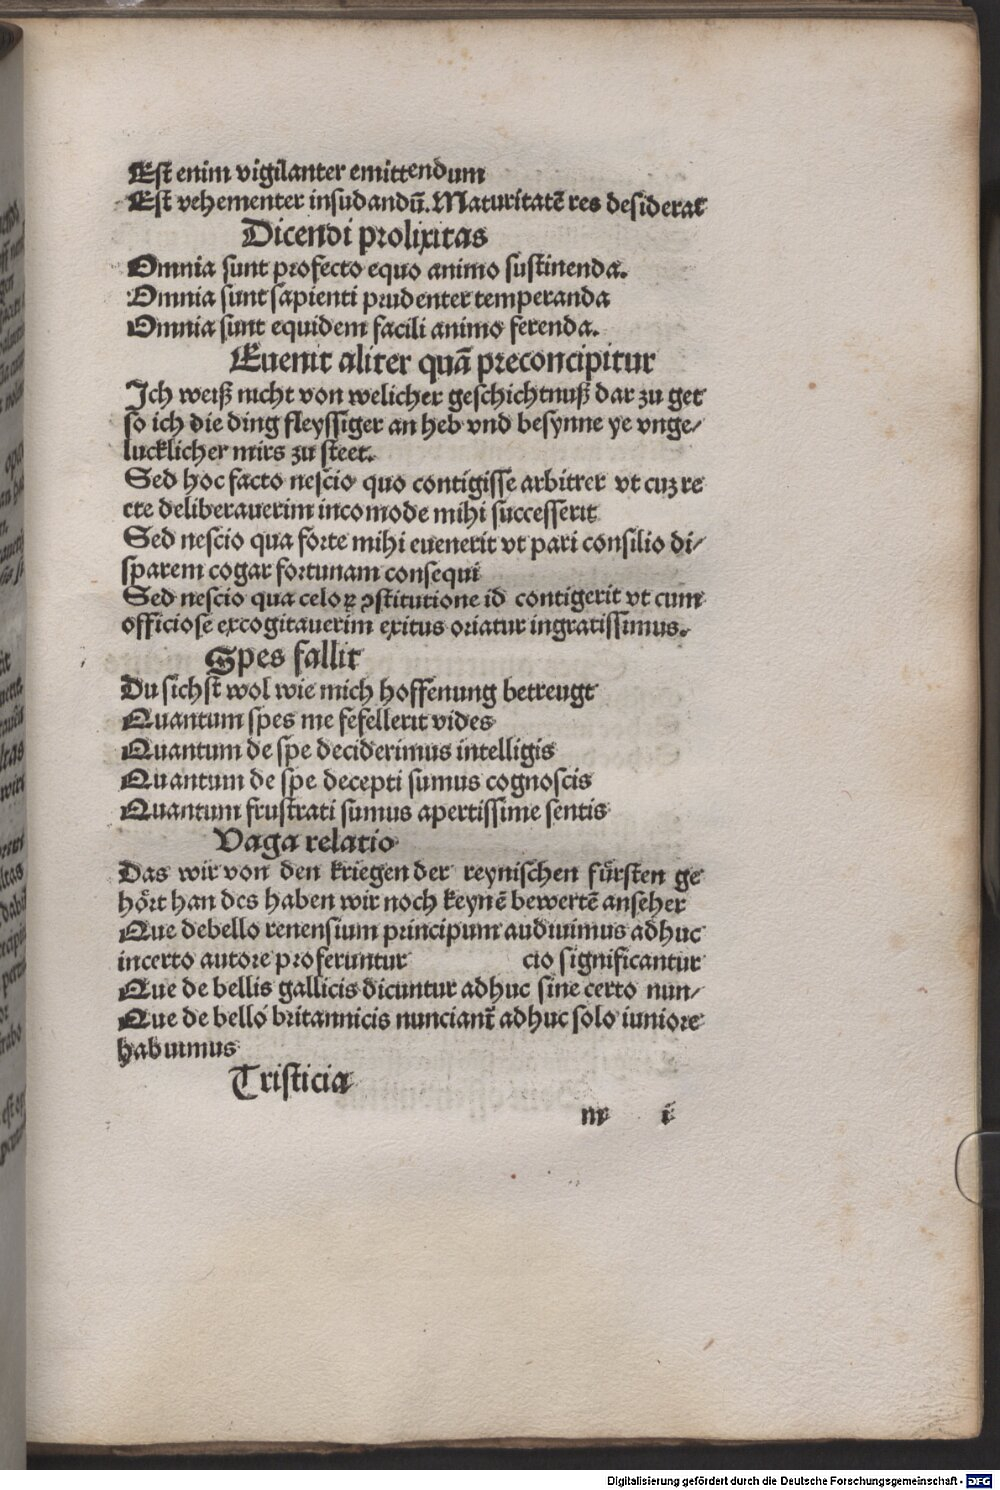 Est̄ enim vigilanter emittendum
Est vehementer insudandū. Maturitatē res desiderat
Dicendi prolixitas
Omnia sunt profecto equo animo sustinenda.
Omnia sunt sapienti prudenter temperanda
Omnia sunt equidem facili animo ferenda.
Euenit aliter quā preconcipitur
Ich weiß nicht von welicher geschichtnuß dar zu get
so ich die ding fleyssiger an heb vnd besynne ye vnge⸗
lucklicher mirs zu steet.
Sed hoc facto nescio quo contigisse arbitrer vt cuz re
cte deliberauerim incomode mihi successerit
Sed nescio qua forte mihi euenerit vt pari consilio di⸗
sparem cogar fortunam consequi
Sed nescio qua celoꝝ ꝯstitutione id contigerit vt cum
officiose excogitauerim exitus oriatur ingratissimus.
Spes fallit
Du sichst wol wie mich hoffenung betreugt
Quantum spes me fefellerit vides
Quantum de spe deciderimus intelligis
Quantum de spe decepti sumus cognoscis
Quantum frustrati sumus apertissime sentis
Vaga relatio
Das wir von den kriegen der reynischen fürsten ge
hört han des haben wir noch keynē bewertē anseher
Que debello renensium principum audiuimus adhuc
incerto autore proferuntur cio significantur
Que de bellis gallicis dicuntur adhuc sine certo nun⸗
Que de bello britannicis nunciant̄ adhuc solo iuniore
habuimus
Tristicia
m i
Digitalisierung gefördert durch die Deutsche Forschungsgemeinschaft - DFG